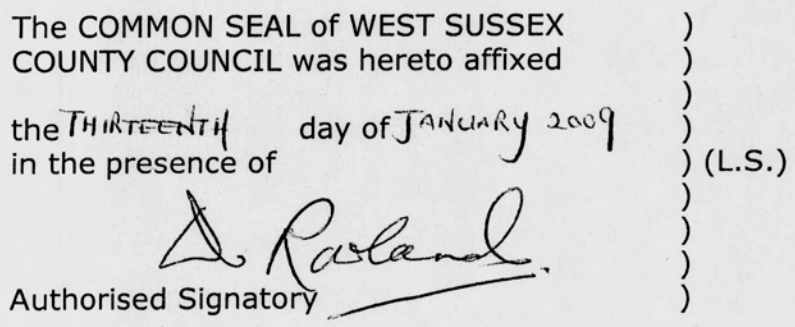 The COMMON SEAL of WEST SUSSEX )
COUNTY COUNCIL was hereto affixed )
)
the THIRTEENTH day of JANUARY 2009 )
in the presence of ) (L.S.)
)
)
)
Authorised Signatory )